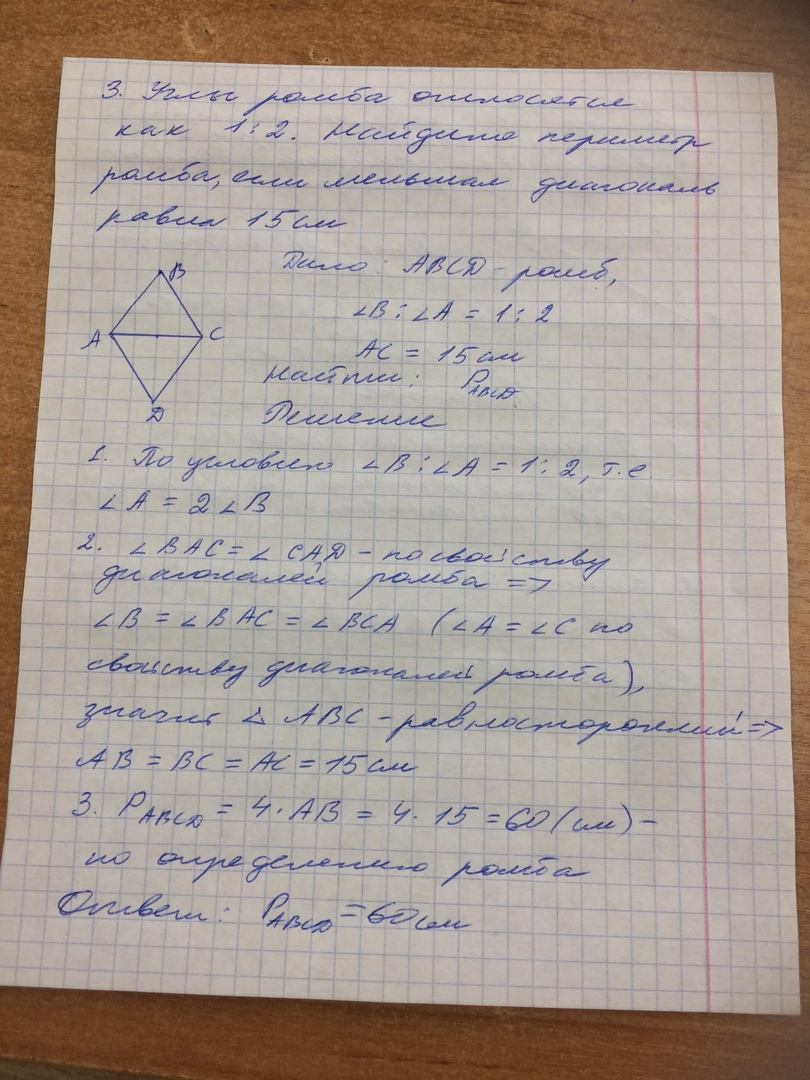 3. Углы ромба относятся
как 1:2. Найдите периметр
ромба, если меньшая диагональ
равна 15 см
Дано: ABCD - ромб,
∠B : ∠A = 1 : 2
AC = 15 см
Найти: P_ABCD
B
A
C
D
Решение
1. По условию ∠B : ∠A = 1 : 2, т.е.
∠A = 2∠B
2. ∠BAC = ∠CAD - по свойству
диагоналей ромба =>
∠B = ∠BAC = ∠BCA (∠A = ∠C по
свойству диагоналей ромба),
значит △ABC - равносторонний =>
AB = BC = AC = 15 см
3. P_ABCD = 4 · AB = 4 · 15 = 60 (см) -
по определению ромба
Ответ: P_ABCD = 60 см